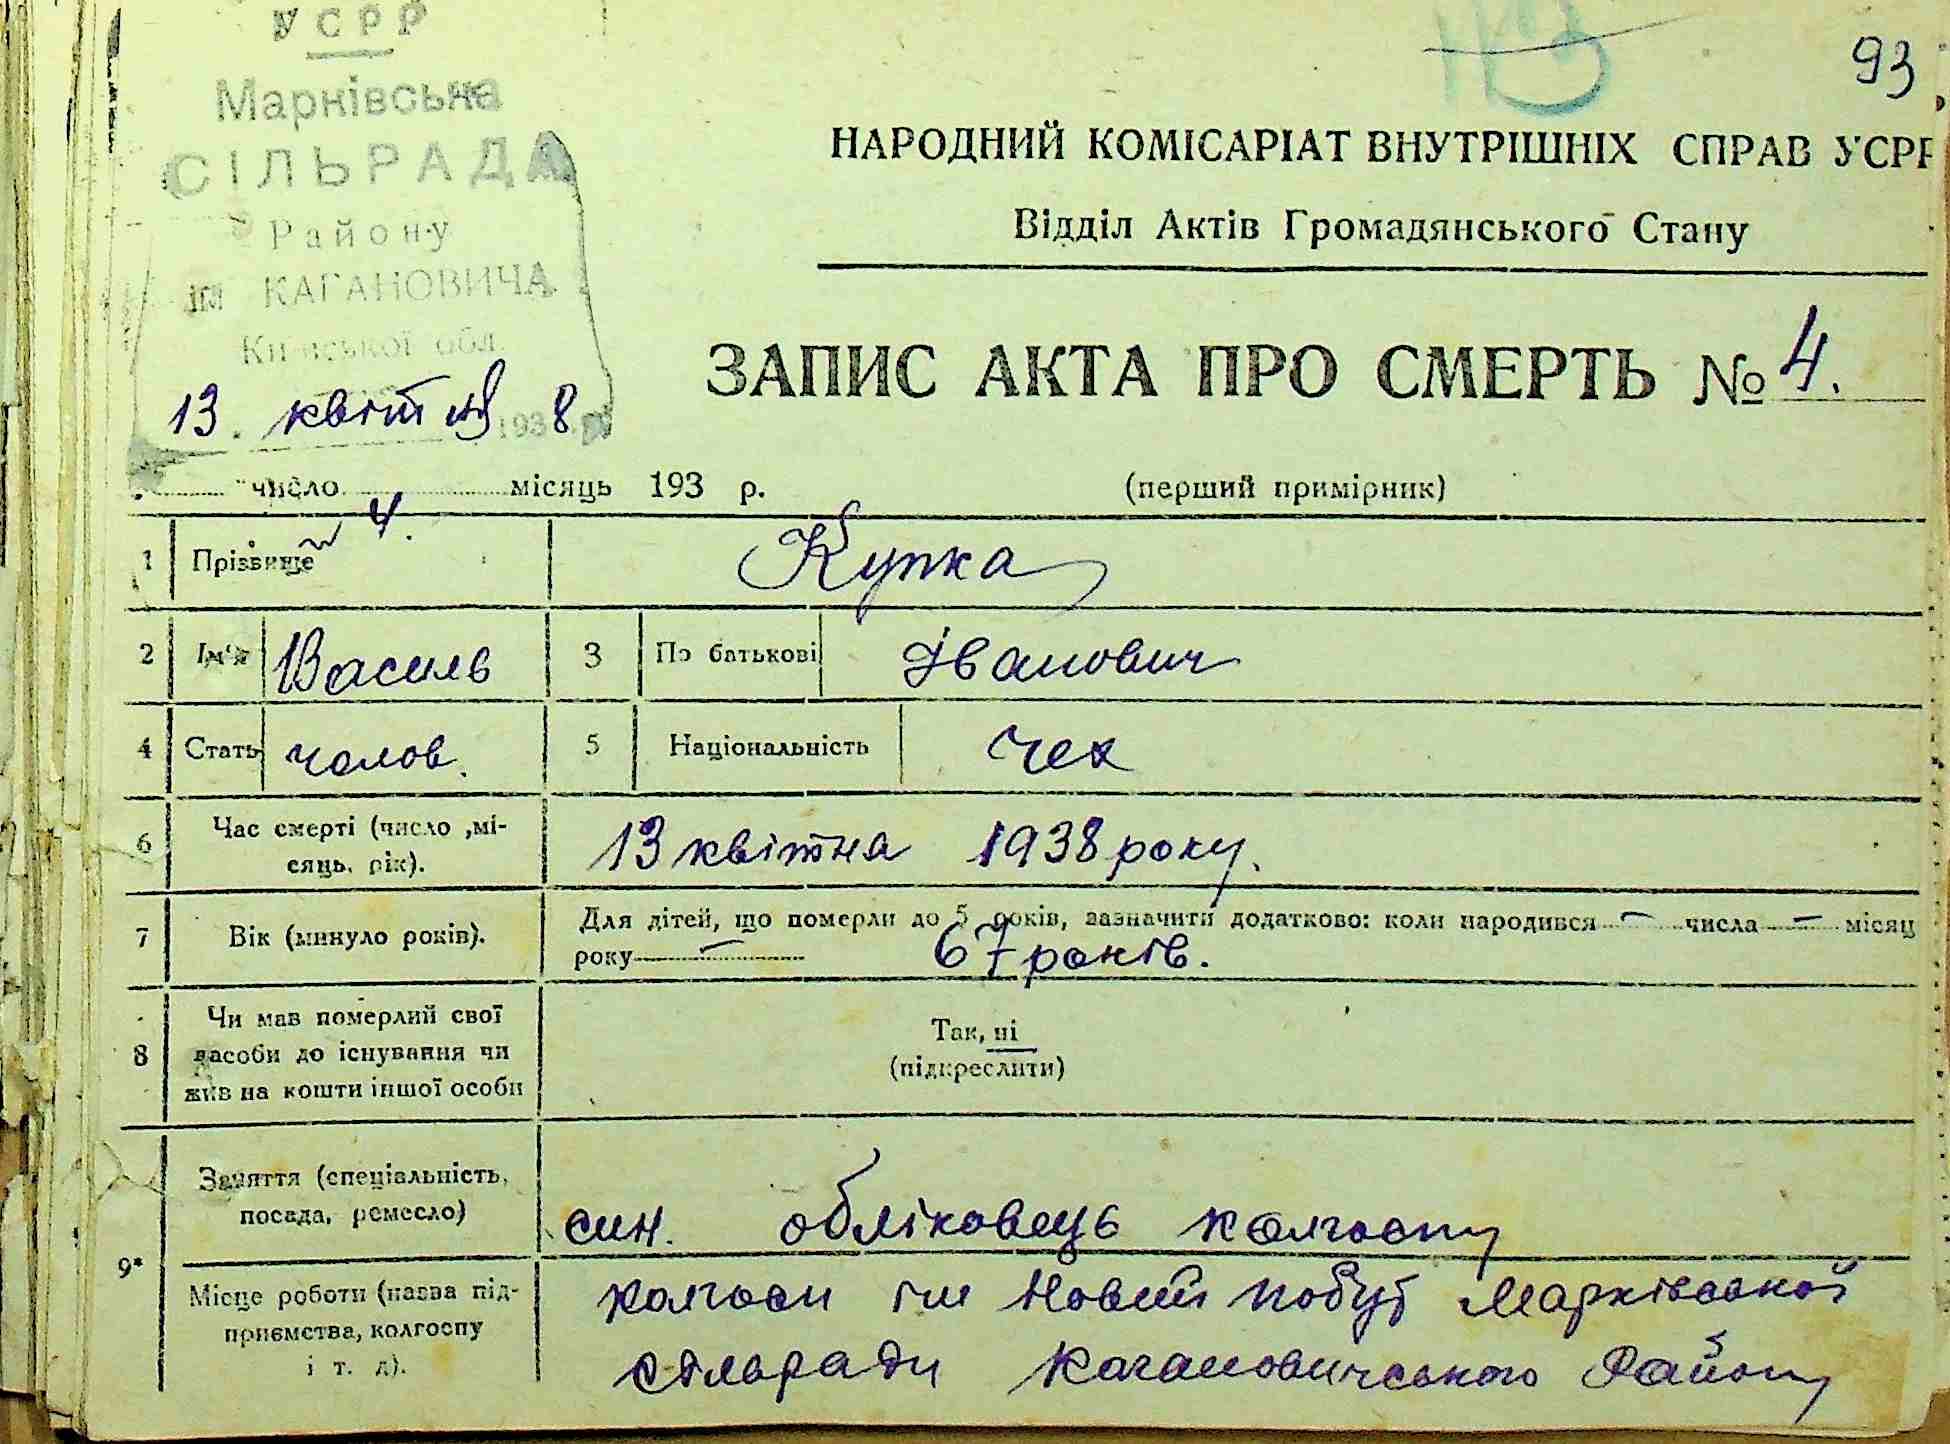 УСРР
Марківська
СІЛЬРАДА
Району
ім КАГАНОВИЧА
Київської обл.
13. квітня 1938
93
НАРОДНИЙ КОМІСАРІАТ ВНУТРІШНІХ СПРАВ УСРР
Відділ Актів Громадянського Стану
ЗАПИС АКТА ПРО СМЕРТЬ № 4.
число місяць 193 р.
(перший примірник)
4.
1 Прізвище Купка
2 Ім'я Василь 3 По батькові Іванович
4 Стать чолов. 5 Національність чех
6 Час смерті (число ,мі-
сяць, рік).
13 квітня 1938 року.
7 Вік (минуло років).
Для дітей, що померли до 5 років, зазначити додатково: коли народився — числа — місяц
року — 67 років.
8 Чи мав померлий свої
засоби до існування чи
жив на кошти іншої особи
Так, ні
(підкреслити)
9*
Заняття (спеціальність,
посада, ремесло)
син. обліковець колгоспу
Місце роботи (назва під-
приємства, колгоспу
і т. д).
колгосп ім Новий побут Марківської
сільради Кагановичського Району